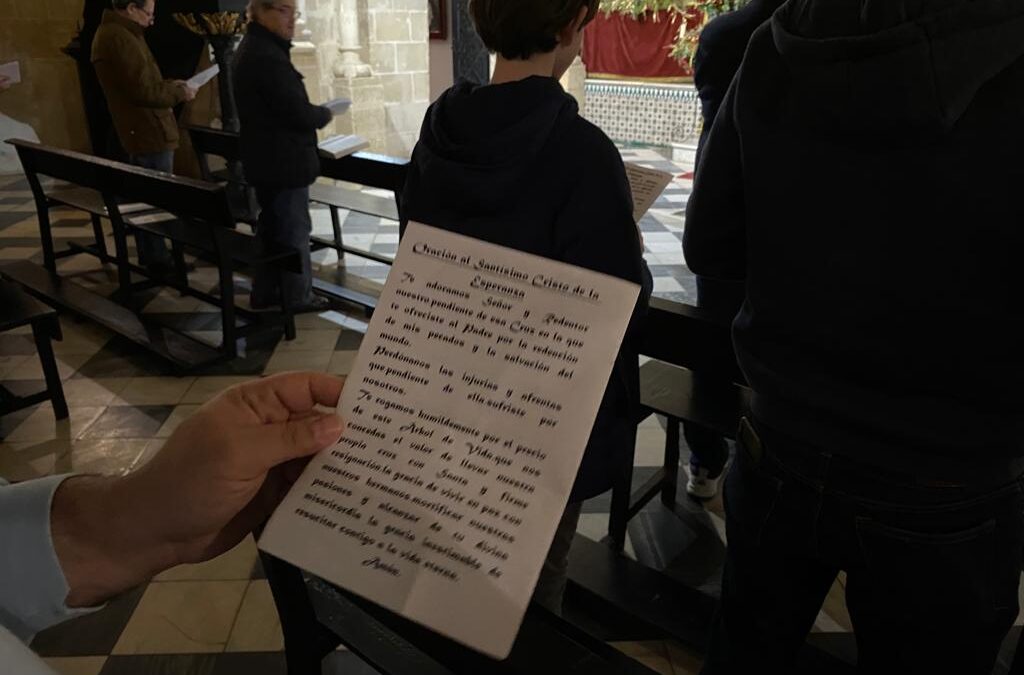 Oración al Santísimo Cristo de la
Esperanza
Te adoramos Señor y Redentor
nuestro pendiente de esa Cruz en la que
te ofreciste al Padre por la redención
de mis pecados y la salvación del
mundo.
Perdónanos las injurias y afrentas
que pendiente de ella sufriste por
nosotros.
Te rogamos humildemente por el precio
de este Árbol de Vida, que nos
concedas el valor de llevar nuestra
propia cruz con Santa y firme
resignación, la gracia de vivir en paz con
nuestros hermanos, mortificar nuestras
pasiones y alcanzar de tu divina
misericordia la gracia inestimable de
resucitar contigo a la vida eterna.
Amén.